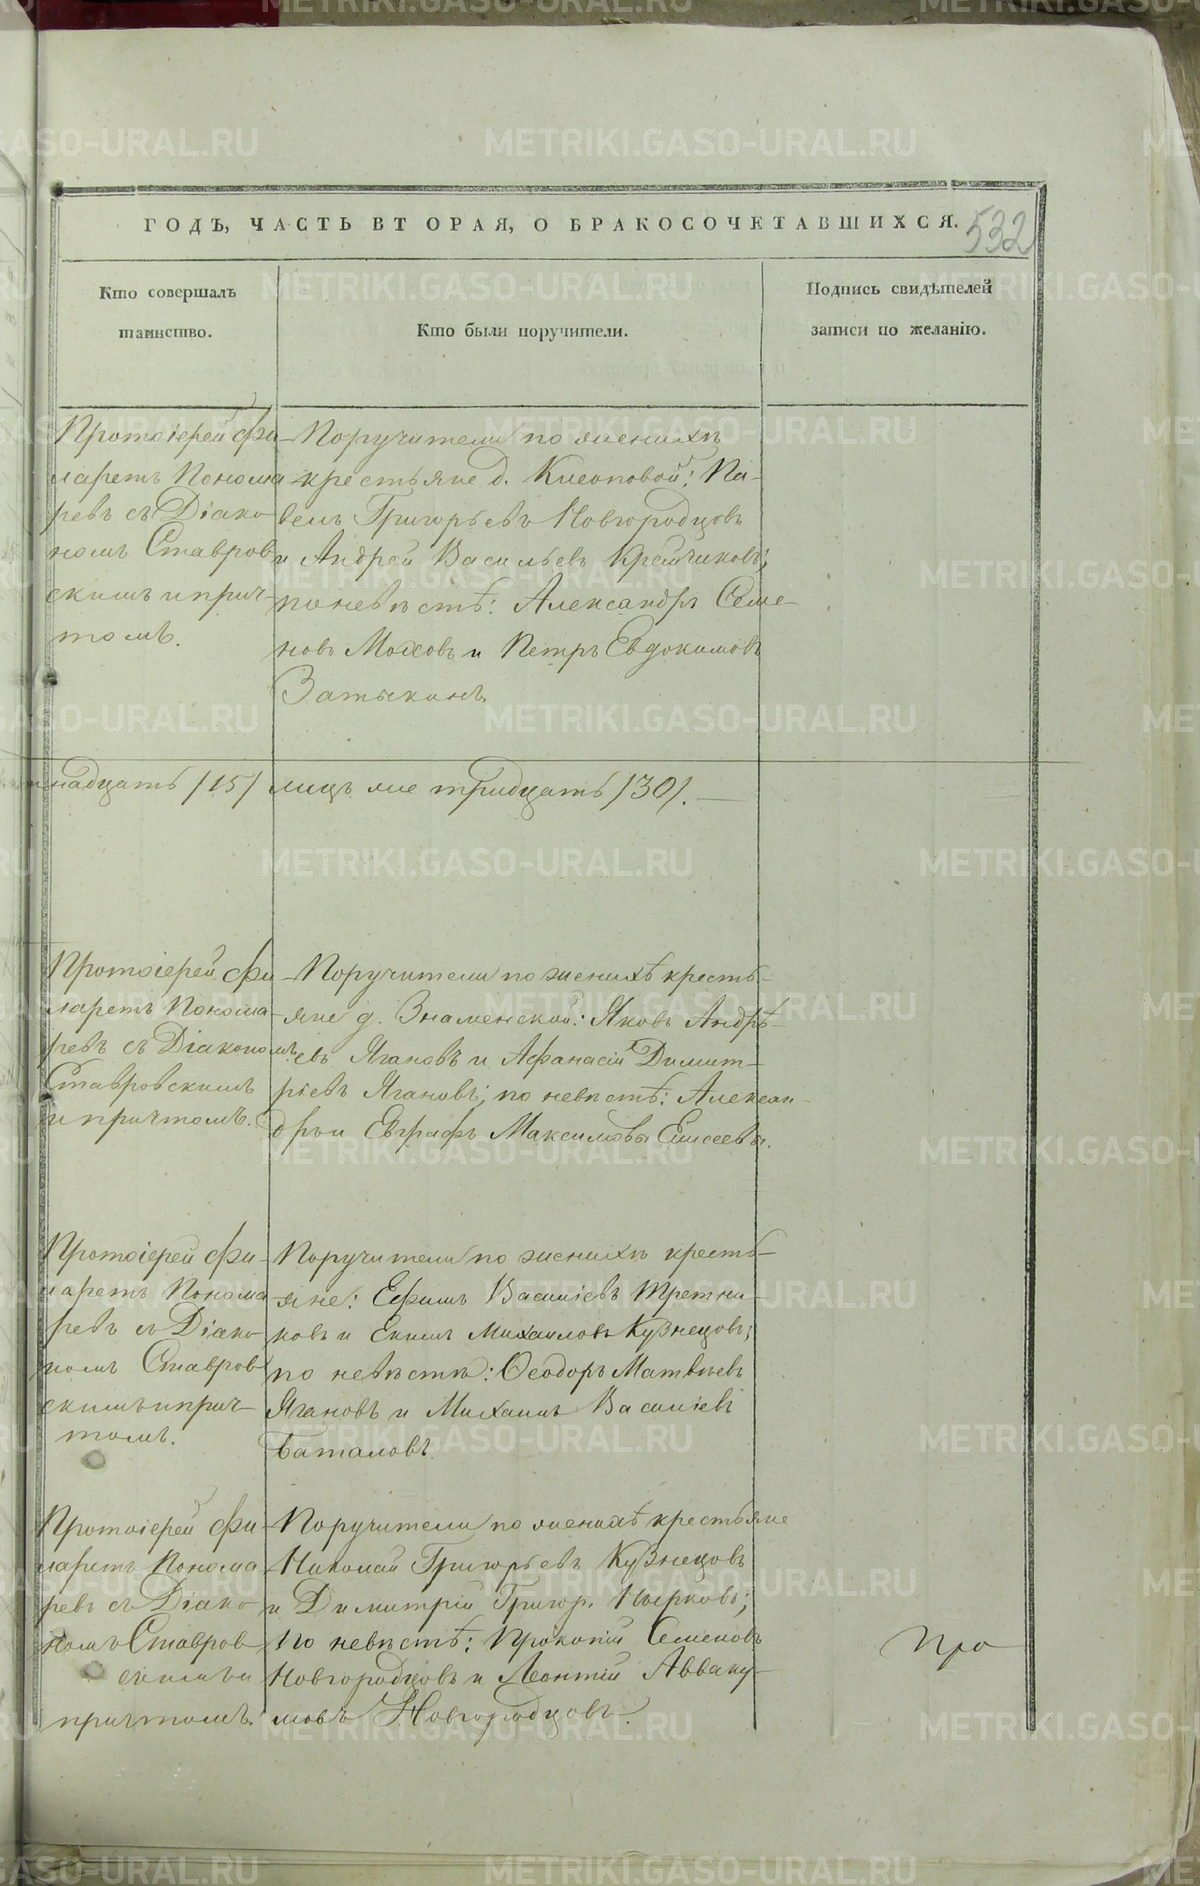 ГОДЪ, ЧАСТЬ ВТОРАЯ, О БРАКОСОЧЕТАВШИХСЯ.
532
Кто совершалъ
таинство.
Кто были поручители.
Подпись свидѣтелей
записи по желанію.
Протоіерей Фи-
ларетъ Понома
ревъ съ Діако-
номъ Ставров
скимъ и прич-
томъ.
Поручители по женихѣ
крестьяне д. Клеоповой: Па-
велъ Григорьевъ Новгородцовъ
и Андрей Васильевъ
по невѣстѣ: Александръ Семе-
новъ Моховъ и Петръ Евдокимовъ
Затыкинъ
надцать /15/ лицъ же тридцать /30/.
Протоіерей Фи
ларетъ Понома-
ревъ съ Діакономъ
Ставровскимъ
и причтомъ.
Поручители по женихѣ кресть-
яне д. Знаменской: Яковъ Андрѣ-
евъ Ягановъ и Афанасій Димит-
ріевъ Ягановъ; по невѣстѣ: Алексан
дръ и Евграфъ Максимовы Елисеевы.
Протоіерей Фи-
ларетъ Понома
ревъ съ Діако
номъ Ставров
скимъ и прич-
томъ.
Поручители по женихѣ кресть-
яне: Ефимъ Василіевъ Третни-
ковъ и Екимъ Михаиловъ Кузнецовъ;
по невѣстѣ: Ѳеодоръ Матвѣевъ
Ягановъ и Михаилъ Василіевъ
Баталовъ
Протоіерей Фи-
ларетъ Понома
ревъ съ Діако-
номъ Ставров
скимъ и
причтомъ.
Поручители по женихѣ крестьяне
Николай Григорьевъ Кузнецовъ
и Димитрій Григор. Нырковъ;
по невѣстѣ: Прокопій Семеновъ
Новгородцовъ и Леонтій Авваку-
мовъ Новгородцовъ.
Про
METRIKI.GASO-URAL.RU